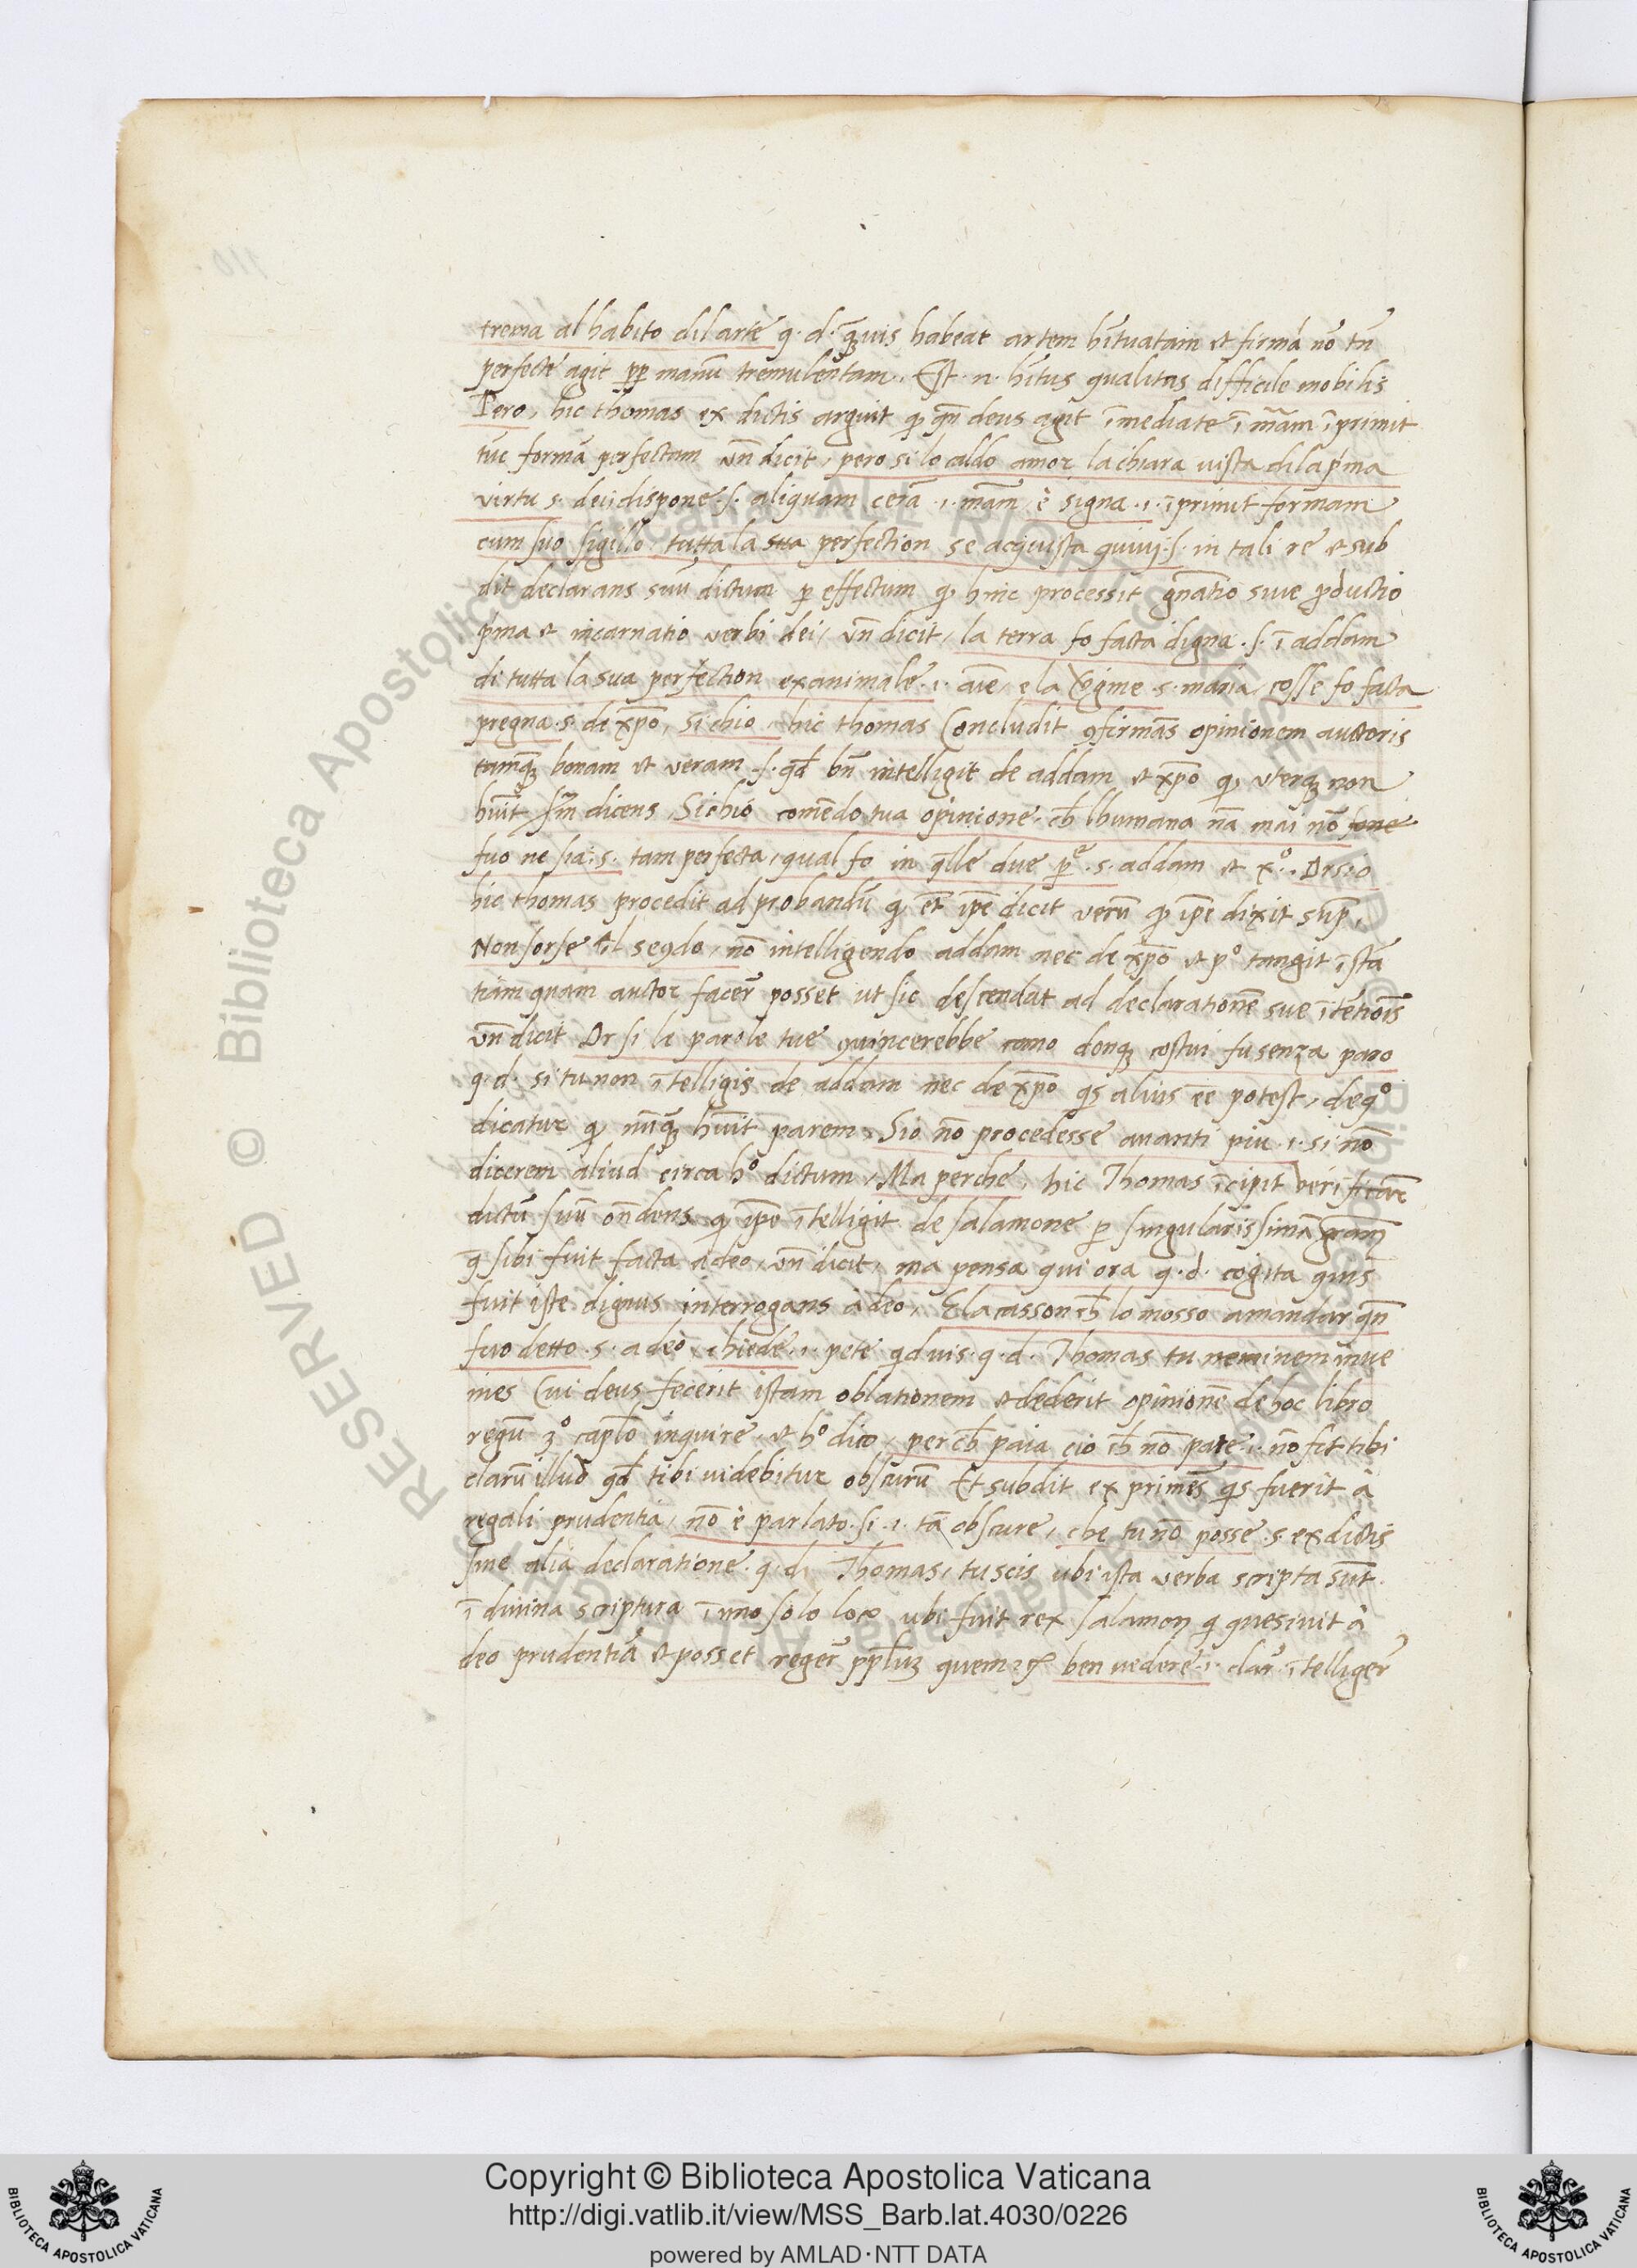 trema al habito dil arte q. d. q̃uis habeat artem hĩtuatam et firmã nõ tñ
perfecte agit pp manũ tremulentam. Est .n. hĩtus qualitas difficile mobilis
Pero, hic thomas ex dictis arguit ꝙ qñ deus agit ĩmediate ĩ mãm ĩprimit
tũc formã perfectam uñ dicit, pero si lo caldo amor la chiara uista dila pͥma
virtu s. dei, dispone .s. aliquam cerã .i. mãm e signa .i. ĩprimit formam
cum suo sigillo tutta la sua perfection se acquista quiui .s. in tali re et sub
dit declarans suũ dictum ꝑ effectum ꝙ hinc processit gñatio siue ꝓductio
pͥma et incarnatio verbi dei, uñ dicit, la terra fo facta digna .s. ĩ addam
di tutta la sua perfection exanimale .i. aĩe, e la Vgine s. maria, cosse fo facta
pregna .s. de xp̃o, Si chio, hic thomas Concludit ꝯfirmãs opinionem auctoris
tamꝗ bonam et veram .s. qđ bñ intelligit de addam et xp̃o ꝙ uterqꝫ non
hũit dicens, Si chio comẽdo tua opinione. ch̃ lhumana nã mai nõ fone
fuo ne sia .s. tam perfecta, qual fo in q̃lle due pͤ .s. addam et xͦ. Orsio
hic thomas procedit ad probandũ ꝙ et̃ ip̃e dicit verũ ꝙ ip̃e dixit sup̃,
Non sorse il seꝯdo, nõ intelligendo addam nec de xp̃o et pͦ tangit ĩstã
tiam quam auctor facer̃ posset ut sic descendat ad declarationẽ sue ĩtẽtiois̃
uñ dicit Or si le parole tue ꝯuincerebbe como donqꝫ costui fu senza paro
q. d. si tu non ĩtelligis de addam nec de xp̃o qͥs alius ẽe potest, de qͦ
dicatur ꝙ nũqꝫ hũit parem, Sio nõ procedesse auanti piu .i. si nõ
dicerem aliud circa hͦ dictum, Ma perche, hic Thomas ĩcipit verificare
dictũ suũ oñdens ꝙ ip̃e ĩtelligit de salamone ꝑ singularissimã grãm
q̃ sibi fuit facta a deo, uñ dicit, ma pensa qui ora q. d. cogita quis
fuit iste dignus interrogans à deo, E la casson ch̃ lo mosse amandar qñ
fuo detto .s. a deo, chiede .i. pete qͥd uis. q. d. Thomas tu neminem inue
nies Cui deus fecerit istam oblationem et dederit opinionẽ de hoc libro
regũ 3ͦ capl̃o inquire, et hͦ dico, per ch̃ paia cio ch̃ nõ pare .i. nõ sit tibi
clarũ illud qđ tibi uidebitur obscurũ Et subdit exprimẽs qͥs fuerit à
regali prudentia, nõ è parlato si .i. tã obscure, che tu nõ posse s. ex dictis
sine alia declaratione. q. d. Thomas, tu scis ubi ista verba scripta sũt
ĩ diuina scriptura ĩ uno solo loco ubi fuit rex salamon qͥ quesiuit à
deo prudentiã et posset reger̃ pp̃luꝫ quem ben uedere .i. clar̃ ĩtelliger̃
Copyright © Biblioteca Apostolica Vaticana
http://digi.vatlib.it/view/MSS_Barb.lat.4030/0226
powered by AMLAD·NTT DATA